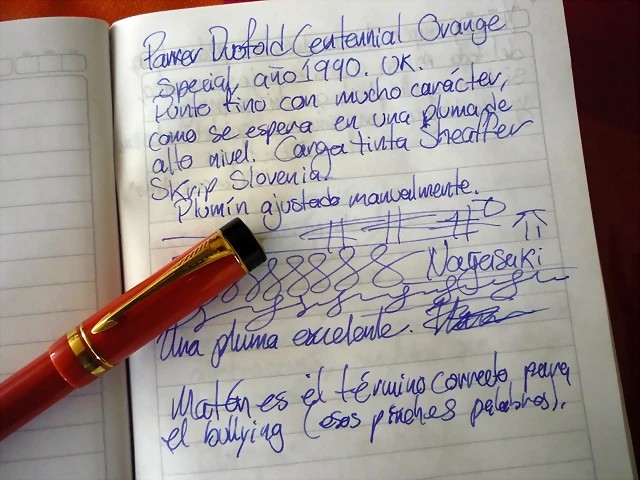 Parker Duofold Centennial Orange
Special, año 1990. UK.
Punto fino con mucho carácter,
como se espera en una pluma de
alto nivel. Carga tinta Sheaffer
Skrip Slovenia.
Plumín ajustado manualmente.
Nagasaki
Una pluma excelente.
Matón es el término correcto para
el bullying (esas pinches palabras).